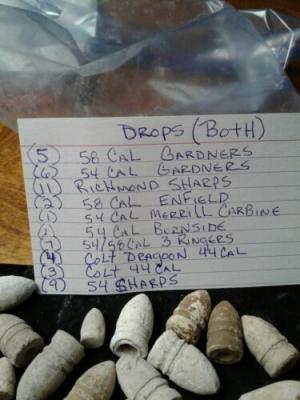 DROPS (BOTH)
(5) 58 CAL GARDNERS
(6) 54 CAL GARDNERS
(11) RICHMOND SHARPS
(2) 58 CAL ENFIELD
(1) 54 CAL MERRILL CARBINE
(1) 54 CAL BURNSIDE
(7) 54/58 CAL 3 RINGERS
(4) COLT DRAGOON 44 CAL
(3) COLT 44 CAL
(9) 54 SHARPS